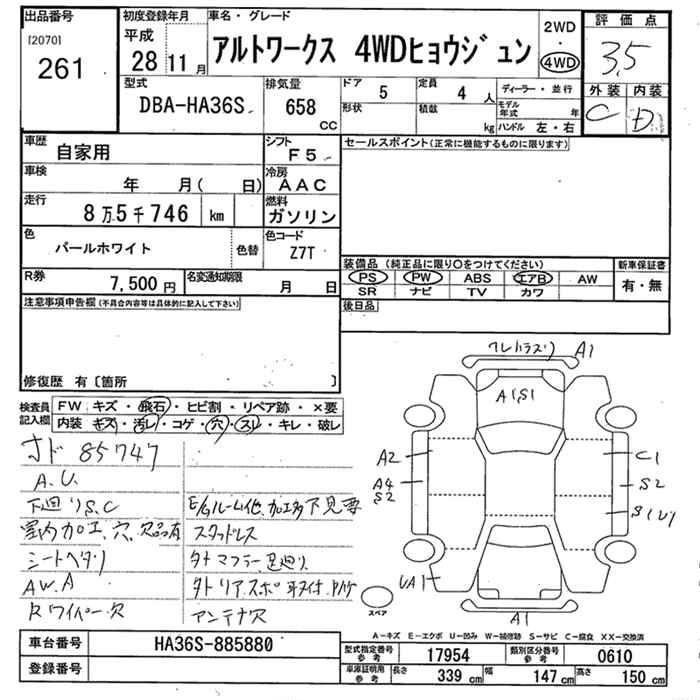 出品番号
[2070]
261
初度登録年月
平成
28 11 月
車名・グレード
アルトワークス 4WDヒョウジュン
2WD
・
4WD
評価点
3.5
外装 内装
C D
型式
DBA-HA36S
排気量
658 CC
ドア 5
形状
定員 4 人
積載 kg
ディーラー・並行
モデル年式 年
ハンドル 左・右
車歴
自家用
シフト
F5
車検
年 月( 日)
冷房
AAC
走行
8万5千746 km
燃料
ガソリン
色
パールホワイト
色替
色コード
Z7T
R券
7,500 円
名変通知期限
月 日
セールスポイント(正常に機能するものに限ります)
装備品(純正品に限り○をつけてください)
PS PW ABS エアB AW
SR ナビ TV カワ
新車保証書
有・無
後日品
注意事項申告欄(不具合内容等は具体的に記入して下さい)
修復歴 有〔箇所 〕
検査員記入欄
FW キズ・飛石・ヒビ割・リペア跡・×要
内装 キズ・汚レ・コゲ・穴・スレ・キレ・破レ
オド 85747
A.U.
下廻りS.C
室内加工、穴、欠品有
シートヘタリ
A.W.A
Rワイパー欠
E/Gルーム仕、加工多下見要
スタッドレス
タトマフラー、足廻り
タトリアスポ
アンテナ穴
A1
A1S1
A2
A4
S2
C1
S2
UA1
A1
スペア
A-キズ E-エクボ U-凹み W-補修跡 S-サビ C-腐食 XX-交換済
車台番号
HA36S-885880
登録番号
型式指定番号
参考
17954
類別区分番号
参考
0610
車庫証明用
参考
長さ 339 cm
幅 147 cm
高さ 150 cm